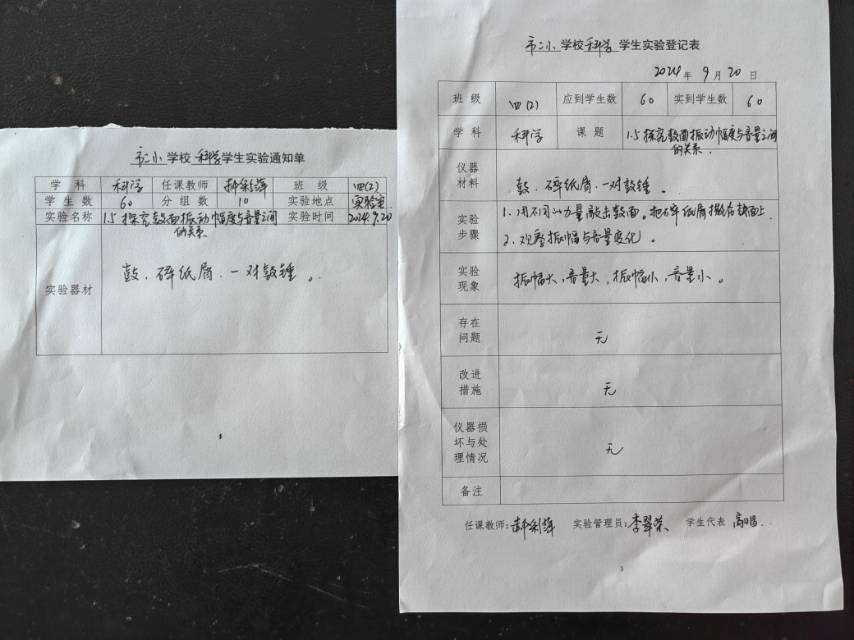 市二小学校科学学生实验通知单
学科 科学 任课教师 班级 四(2)
学生数 60 分组数 10 实验地点 实验室
实验名称 1.5探究鼓面振动幅度与音量之间的关系. 实验时间 2024.9.20
实验器材 鼓、碎纸屑、一对鼓锤。
市二小学校科学学生实验登记表
2024年9月20日
班级 四(2) 应到学生数 60 实到学生数 60
学科 科学 课题 1.5探究鼓面振动幅度与音量之间的关系.
仪器材料 鼓、碎纸屑、一对鼓锤。
实验步骤 1.用不同的力量敲击鼓面。把碎纸屑撒在鼓面上
2.观察振幅与音量变化。
实验现象 振幅大,音量大,振幅小,音量小。
存在问题 无
改进措施 无
仪器损坏与处理情况 无
备注
任课教师: 实验管理员:李翠荣 学生代表
3